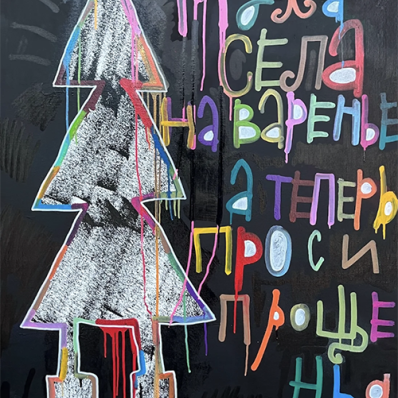 СЕЛА
НА ВАРЕНЬЕ
А ТЕПЕРЬ
ПРОСИ
ПРОЩЕ
НЬЯ